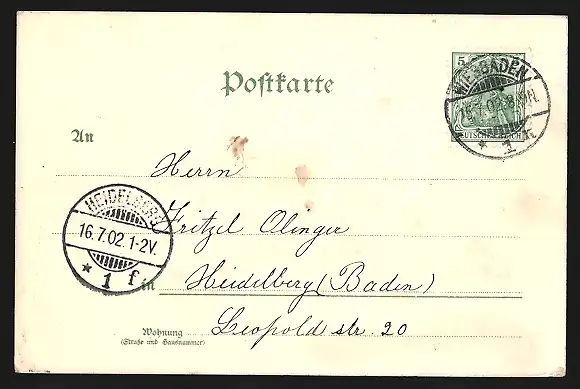 Postkarte
5
DEUTSCHES REICH
WIESBADEN
1
An
Herrn
Fritzel Olinger
HEIDELBERG
16.7.02.1-2V.
* 1 f.
in Heidelberg (Baden)
Wohnung
(Straße und Hausnummer)
Leopold str. 20